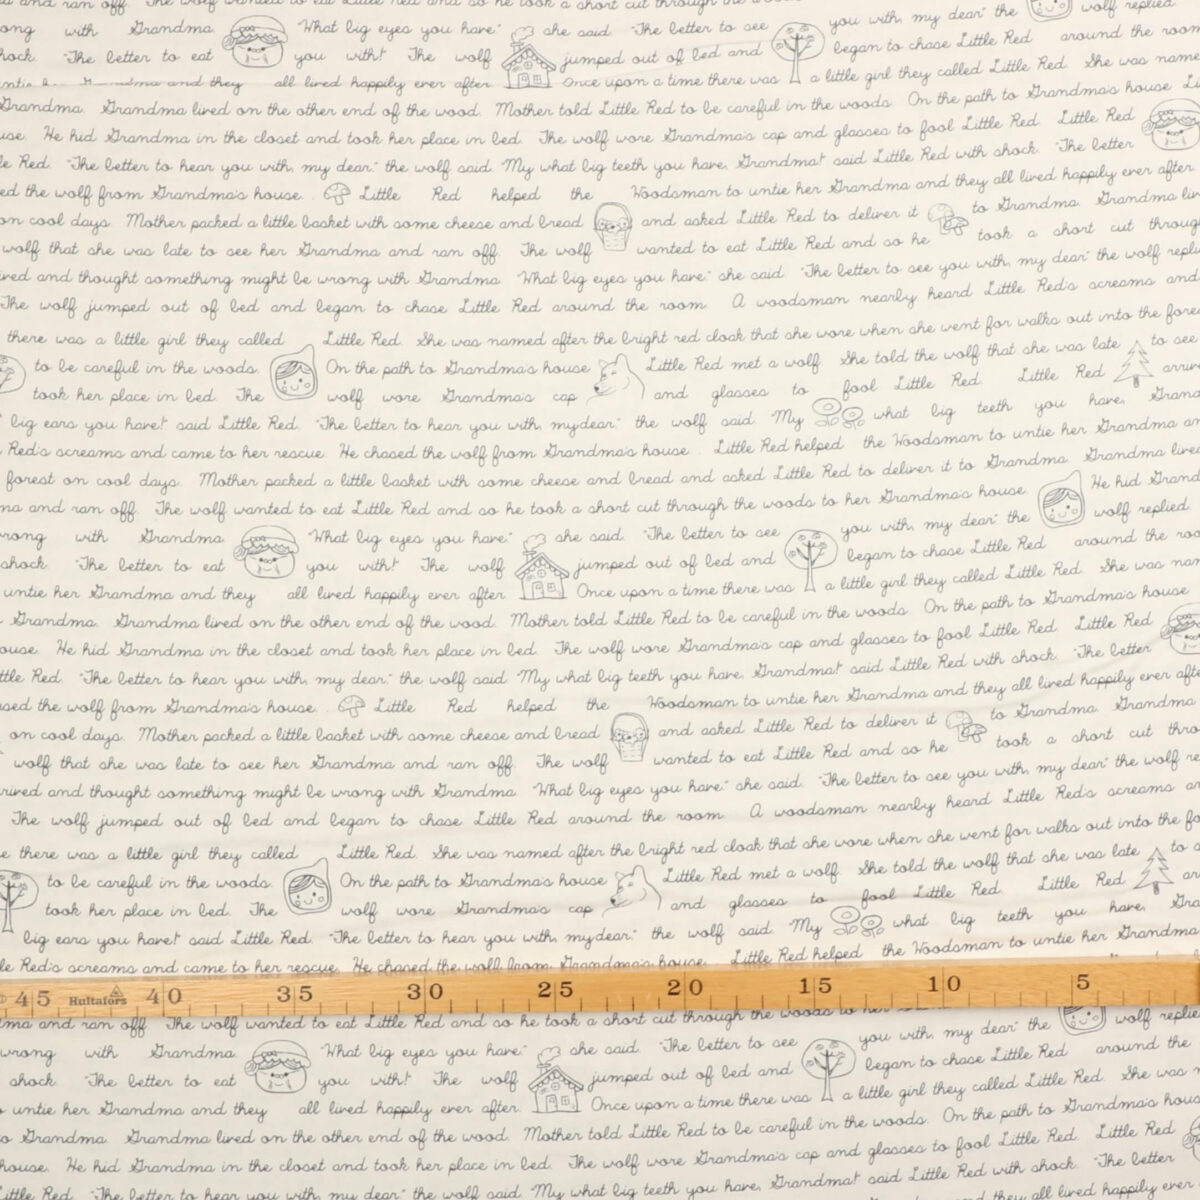 and ran off. The wolf wanted to eat Little Red and so he took a short cut through the woods
with Grandma. "What big eyes you have." she said. "The better to see you with, my dear." the wolf replied
"The better to eat you with!" The wolf jumped out of bed and began to chase Little Red around the room.
and they all lived happily ever after. Once upon a time there was a little girl they called Little Red. She was named
Grandma. Grandma lived on the other end of the wood. Mother told Little Red to be careful in the woods. On the path to Grandma's house
He hid Grandma in the closet and took her place in bed. The wolf wore Grandma's cap and glasses to fool Little Red. Little Red
Red. "The better to hear you with, my dear." the wolf said. "My what big teeth you have, Grandma!" said Little Red with shock. "The better
the wolf from Grandma's house. Little Red helped the Woodsman to untie her Grandma and they all lived happily ever after
on cool days. Mother packed a little basket with some cheese and bread and asked Little Red to deliver it to Grandma. Grandma
wolf that she was late to see her Grandma and ran off. The wolf wanted to eat Little Red and so he took a short cut
and thought something might be wrong with Grandma. "What big eyes you have." she said. "The better to see you with, my dear." the wolf
The wolf jumped out of bed and began to chase Little Red around the room. A woodsman nearby heard Little Red's screams and
there was a little girl they called Little Red. She was named after the bright red cloak that she wore when she went for walks out into the
to be careful in the woods. On the path to Grandma's house Little Red met a wolf. She told the wolf that she was late to see
took her place in bed. The wolf wore Grandma's cap and glasses to fool Little Red. Little Red
big ears you have!" said Little Red. "The better to hear you with, my dear." the wolf said. "My what big teeth you have,
Red's screams and came to her rescue. He chased the wolf from Grandma's house. Little Red helped the Woodsman to untie her Grandma
forest on cool days. Mother packed a little basket with some cheese and bread and asked Little Red to deliver it to Grandma. Grandma lived
and ran off. The wolf wanted to eat Little Red and so he took a short cut through the woods to her Grandma's house. He hid
with Grandma. "What big eyes you have." she said. "The better to see you with, my dear." the wolf replied.
shock. "The better to eat you with!" The wolf jumped out of bed and began to chase Little Red around the
untie her Grandma and they all lived happily ever after. Once upon a time there was a little girl they called Little Red. She was
Grandma. Grandma lived on the other end of the wood. Mother told Little Red to be careful in the woods. On the path to Grandma's house
He hid Grandma in the closet and took her place in bed. The wolf wore Grandma's cap and glasses to fool Little Red. Little Red
Red. "The better to hear you with, my dear." the wolf said. "My what big teeth you have, Grandma!" said Little Red with shock. "The better
the wolf from Grandma's house. Little Red helped the Woodsman to untie her Grandma and they all lived happily ever
on cool days. Mother packed a little basket with some cheese and bread and asked Little Red to deliver it to Grandma. Grandma
wolf that she was late to see her Grandma and ran off. The wolf wanted to eat Little Red and so he took a short cut
and thought something might be wrong with Grandma. "What big eyes you have." she said. "The better to see you with, my dear." the wolf
The wolf jumped out of bed and began to chase Little Red around the room. A woodsman nearby heard Little Red's screams
there was a little girl they called Little Red. She was named after the bright red cloak that she wore when she went for walks out into the
to be careful in the woods. On the path to Grandma's house Little Red met a wolf. She told the wolf that she was late to
took her place in bed. The wolf wore Grandma's cap and glasses to fool Little Red. Little Red
big ears you have!" said Little Red. "The better to hear you with, my dear." the wolf said. "My what big teeth you have,
Red's screams and came to her rescue. He chased the wolf from Grandma's house. Little Red helped the Woodsman to untie her Grandma
45 Hultafors 40 35 30 25 20 15 10 5
and ran off. The wolf wanted to eat Little Red and so he took a short cut through the woods to her
wrong with Grandma. "What big eyes you have." she said. "The better to see you with, my dear." the wolf
shock. "The better to eat you with!" The wolf jumped out of bed and began to chase Little Red around the
untie her Grandma and they all lived happily ever after. Once upon a time there was a little girl they called Little Red. She was
Grandma. Grandma lived on the other end of the wood. Mother told Little Red to be careful in the woods. On the path to Grandma's
house. He hid Grandma in the closet and took her place in bed. The wolf wore Grandma's cap and glasses to fool Little Red. Little Red
Little Red. "The better to hear you with, my dear." the wolf said. "My what big teeth you have, Grandma!" said Little Red with shock. "The better